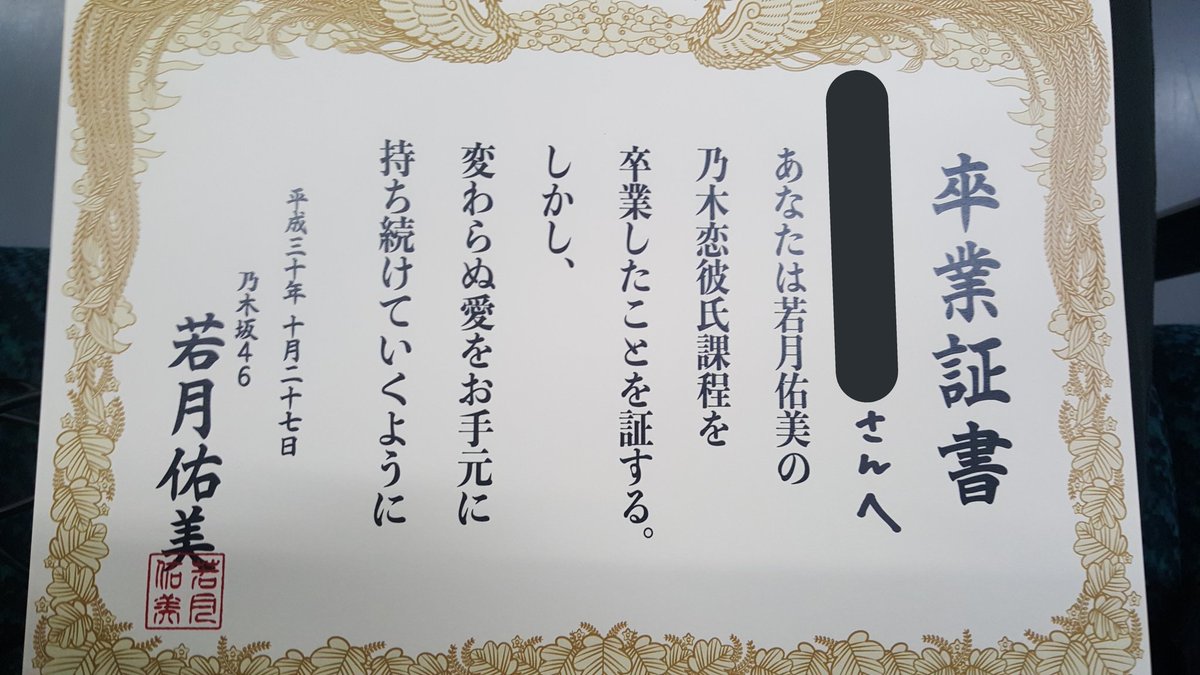 卒業証書
さんへ
あなたは若月佑美の
乃木恋彼氏課程を
卒業したことを証する。
しかし、
変わらぬ愛をお手元に
持ち続けていくように
平成三十年 十月二十七日
乃木坂46
若月佑美
若月
佑美